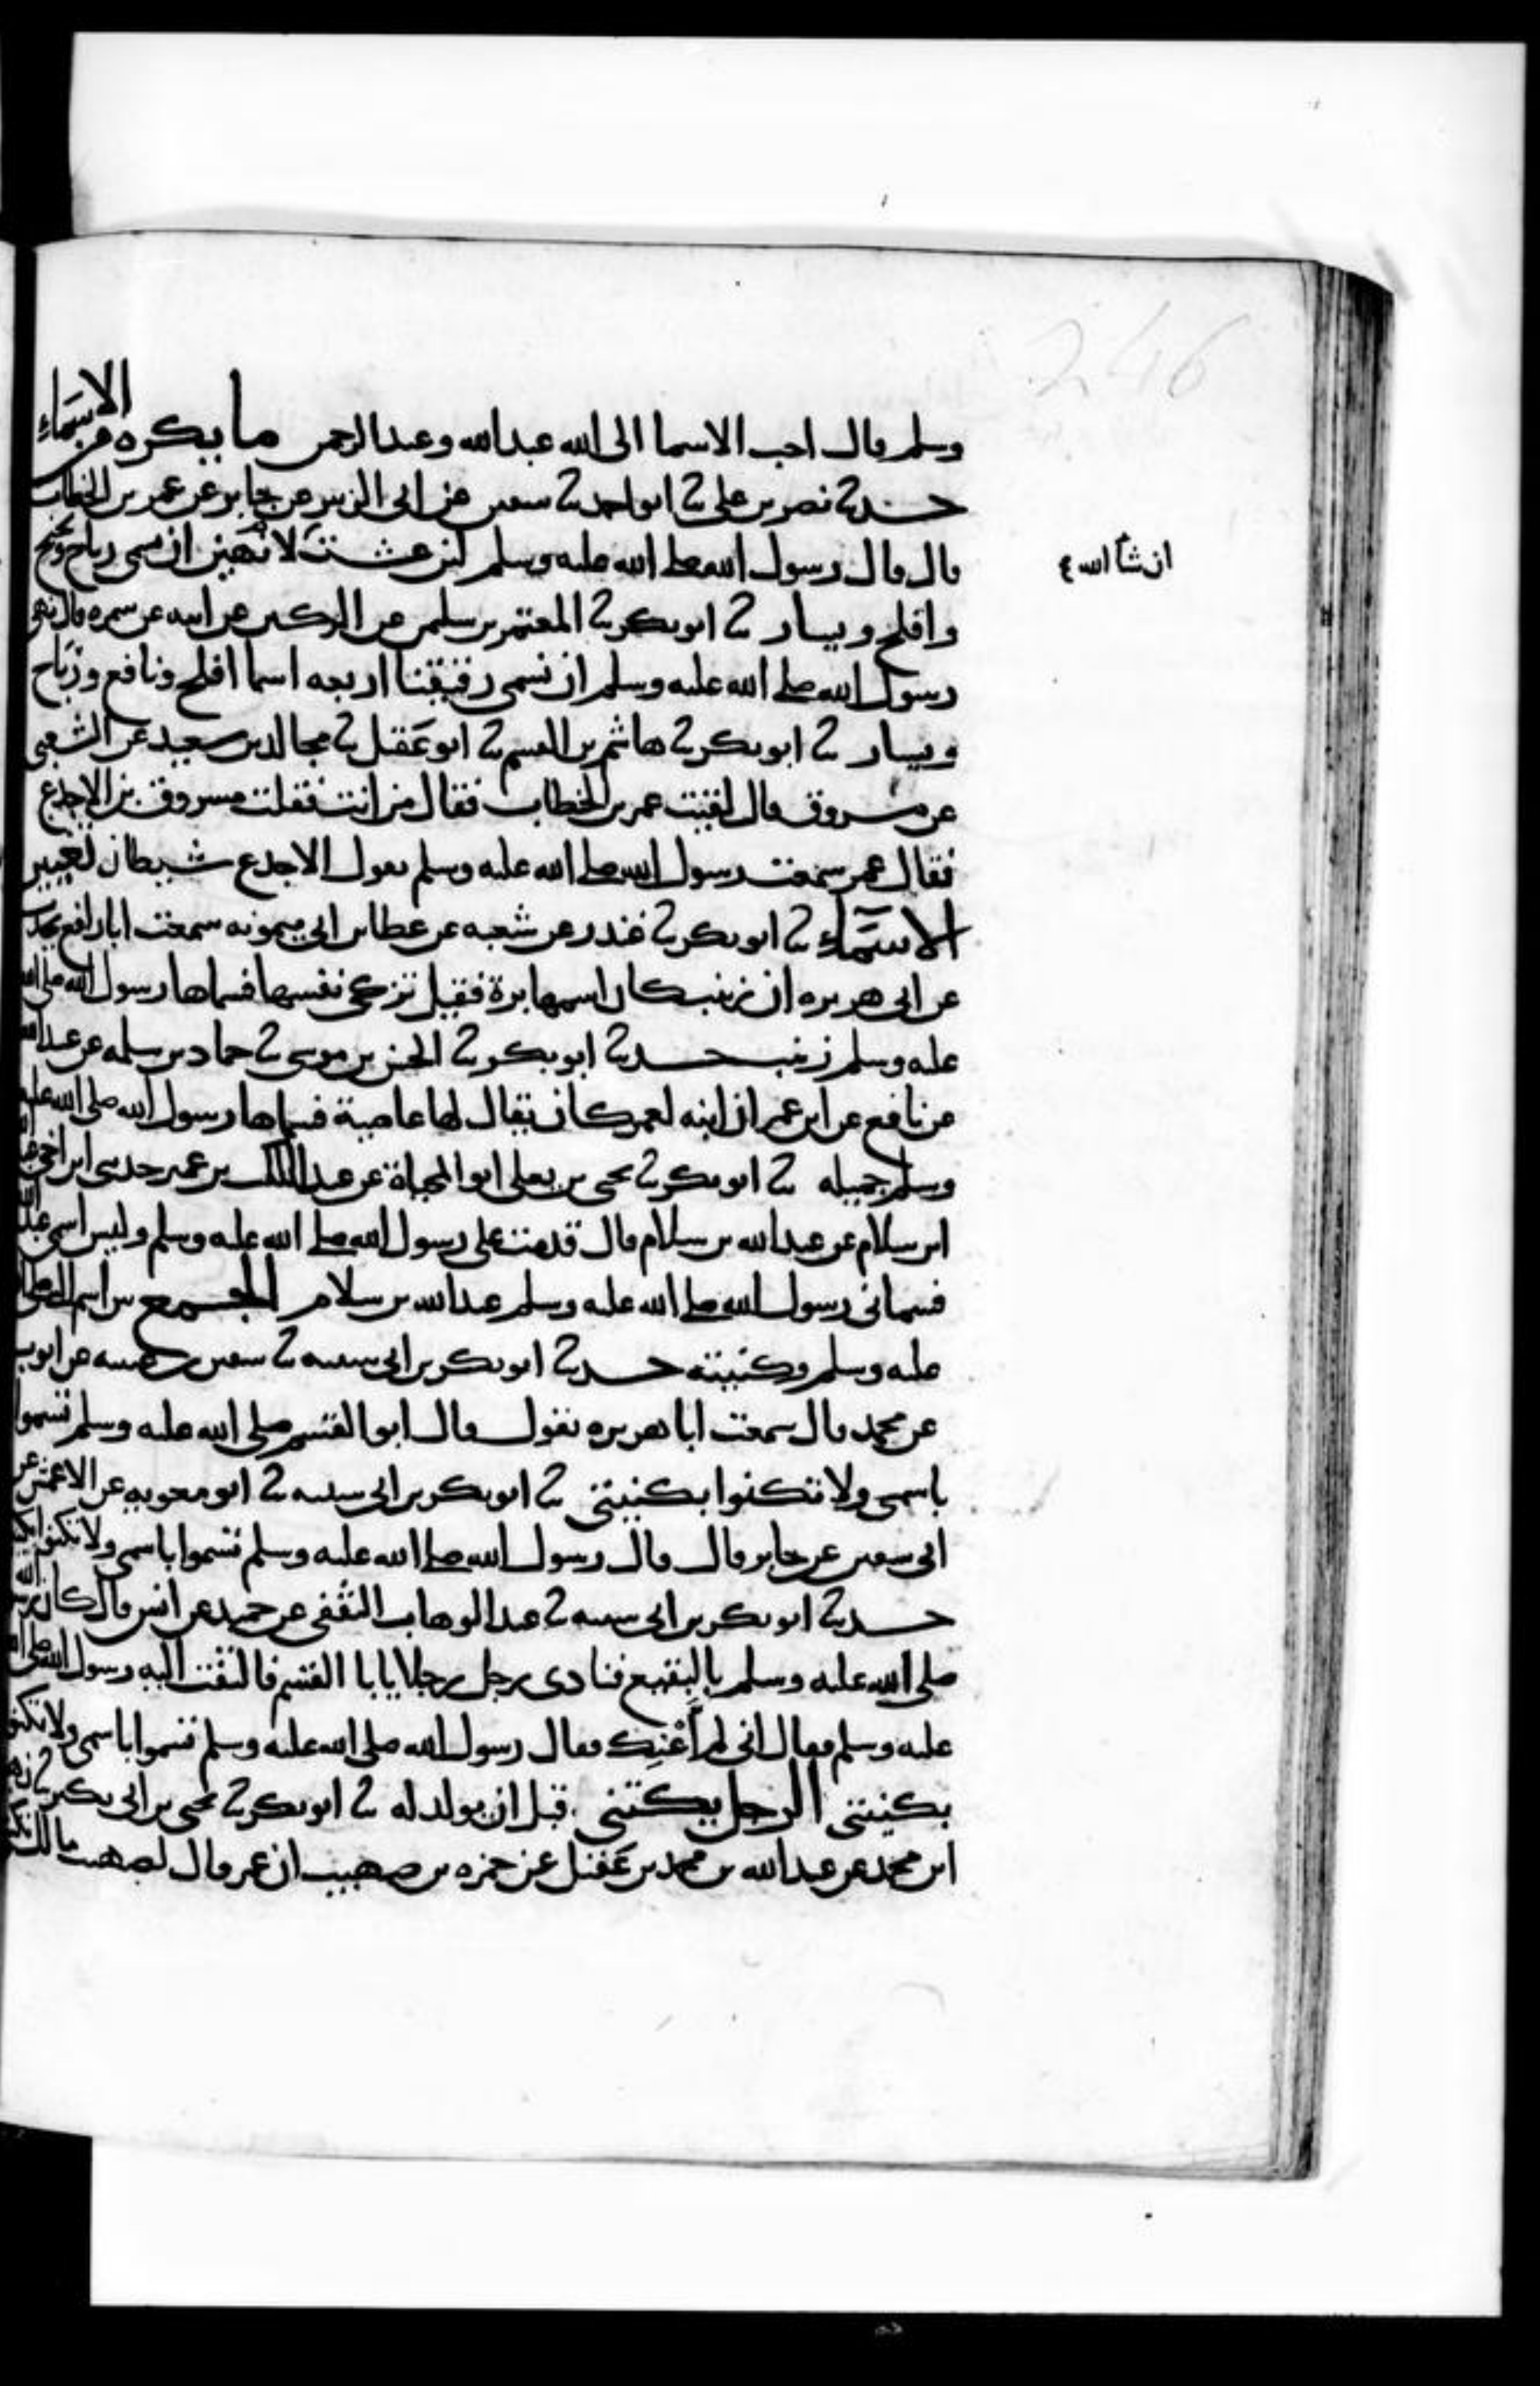 246
وسلم قال احب الاسما الى الله عبدالله وعبدالرحمن ما يكره من الاسماء
حدثنا نصر بن علي ثنا ابو احمد ثنا سفين عن ابي الزبير عن جابر عن عمر بن الخطاب
قال قال رسول الله صلى الله عليه وسلم لئن عشت لانهين ان يسمى رباح ونجيح
ان شاء الله
وافلح ويسار ثنا ابو بكر ثنا المعتمر بن سليمن عن الركين عن ابيه عن سمره قال نهى
رسول الله صلى الله عليه وسلم ان نسمي رقيقنا اربعه اسما افلح ونافع ورباح
ويسار ثنا ابو بكر ثنا هاشم بن القسم ثنا ابو عقيل ثنا مجالد بن سعيد عن الشعبي
عن مسروق قال لقيت عمر بن الخطاب فقال من انت فقلت مسروق بن الاجدع
فقال عمر سمعت رسول الله صلى الله عليه وسلم يقول الاجدع شيطان تغيير
الاسماء ثنا ابو بكر ثنا غندر عن شعبه عن عطا بن ابي ميمونه سمعت ابا رافع يحدث
عن ابي هريره ان زينب كان اسمها برة فقيل تزكي نفسها فسماها رسول الله صلى الله
عليه وسلم زينب حدثنا ابو بكر ثنا الحسن بن موسى ثنا حماد بن سلمه عن عبيدالله
عن نافع عن ابن عمر ان ابنه لعمر كان يقال لها عاصية فسماها رسول الله صلى الله عليه
وسلم جميله ثنا ابو بكر ثنا يحيى بن يعلى ابو المحياة عن عبد الملك بن عمير حدثني ابن اخي عبدالله
ابن سلام عن عبدالله بن سلام قال قدمت على رسول الله صلى الله عليه وسلم وليس اسمي عبدالله
فسماني رسول الله صلى الله عليه وسلم عبدالله بن سلام الجمع بين اسم النبي صلى الله
عليه وسلم وكنيته حدثنا ابو بكر بن ابي شيبه ثنا سفين بن عيينه عن ايوب
عن محمد قال سمعت ابا هريره يقول قال ابو القسم صلى الله عليه وسلم تسموا
باسمي ولا تكنوا بكنيتي ثنا ابو بكر بن ابي شيبه ثنا ابو معويه عن الاعمش عن
ابي سفين عن جابر قال قال رسول الله صلى الله عليه وسلم تسموا باسمي ولا تكنوا
حدثنا ابو بكر بن ابي شيبه ثنا عبد الوهاب الثقفي عن حميد عن انس قال كان رسول الله
صلى الله عليه وسلم بالبقيع فنادى رجل رجلا يابا القسم فالتفت اليه رسول الله صلى الله
عليه وسلم فقال اني لم أعنك فقال رسول الله صلى الله عليه وسلم تسموا باسمي ولا تكنوا
بكنيتي الرجل يكتني قبل ان يولد له ثنا ابو بكر ثنا يحيى بن ابي بكير ثنا زهير
ابن محمد عن عبدالله بن محمد بن عقيل عن حمزه بن صهيب ان عمر قال لصهيب مالك